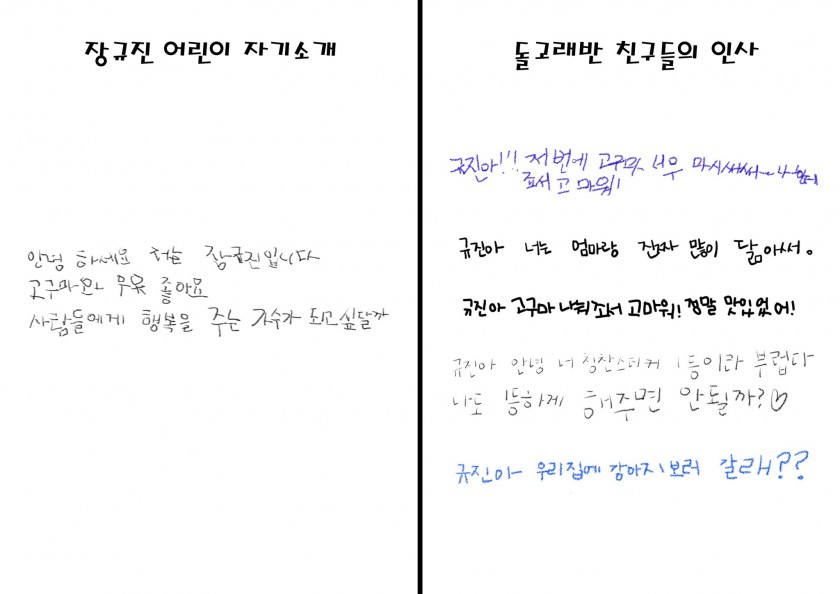 장규진 어린이 자기소개
안녕 하세요 저는 장규진입니다
고구마와 우유 좋아요
사람들에게 행복을 주는 가수가 되고싶달까
돌고래반 친구들의 인사
규진아!!! 저번에 고구마 너무 마시써써~ 나한테
죠서 고마워!
규진아 너는 엄마랑 진짜 많이 닮아써.
규진아 고구마 나눠조서 고마워! 정말 맛있었어!
규진아 안녕 너 칭찬스티커 1등이라 부럽다
나도 1등하게 해주면 안될까?♡
규진아 우리집에 강아지 보러 갈래??